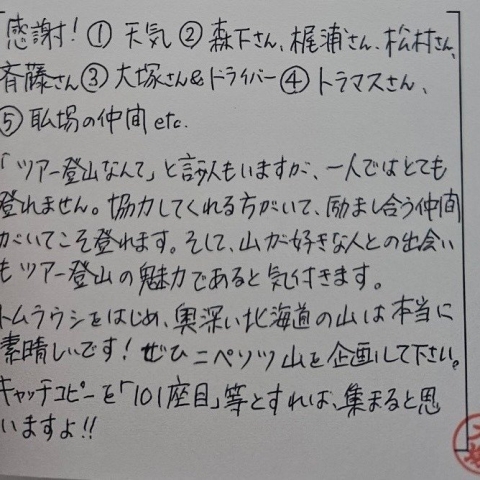 感謝! ① 天気 ② 森下さん、梶浦さん、松村さん、
斉藤さん ③ 大塚さん&ドライバー ④ トラマスさん、
⑤ 職場の仲間 etc.
「ツアー登山なんて」と言う人もいますが、一人ではとても
登れません。協力してくれる方がいて、励まし合う仲間
がいてこそ登れます。そして、山が好きな人との出会い
もツアー登山の魅力であると気付きます。
トムラウシをはじめ、奥深い北海道の山は本当に
素晴しいです! ぜひニペソツ山を企画して下さい。
キャッチコピーを「101座目」等とすれば、集まると思
いますよ!!